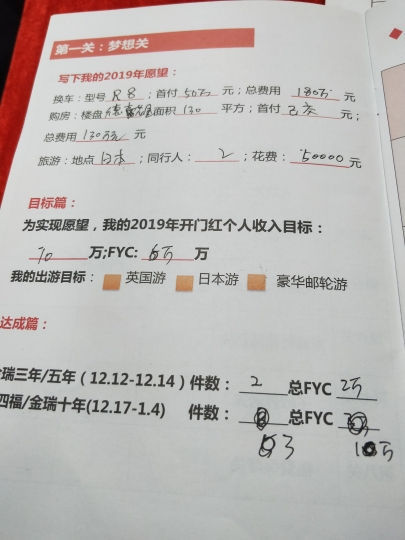 第一关：梦想关
写下我的2019年愿望：
换车：型号 R8 ；首付 50万 元；总费用 180万 元
购房：楼盘 面积 130 平方；首付 元；
总费用 130万 元
旅游：地点 日本 ；同行人： 2 ；花费： 50000 元
目标篇：
为实现愿望，我的2019年开门红个人收入目标：
70 万;FYC: 6万 万
我的出游目标： 英国游 日本游 豪华邮轮游
达成篇：
瑞三年/五年（12.12-12.14）件数： 2 总FYC 2万
四福/金瑞十年(12.17-1.4) 件数： 总FYC
3 10万